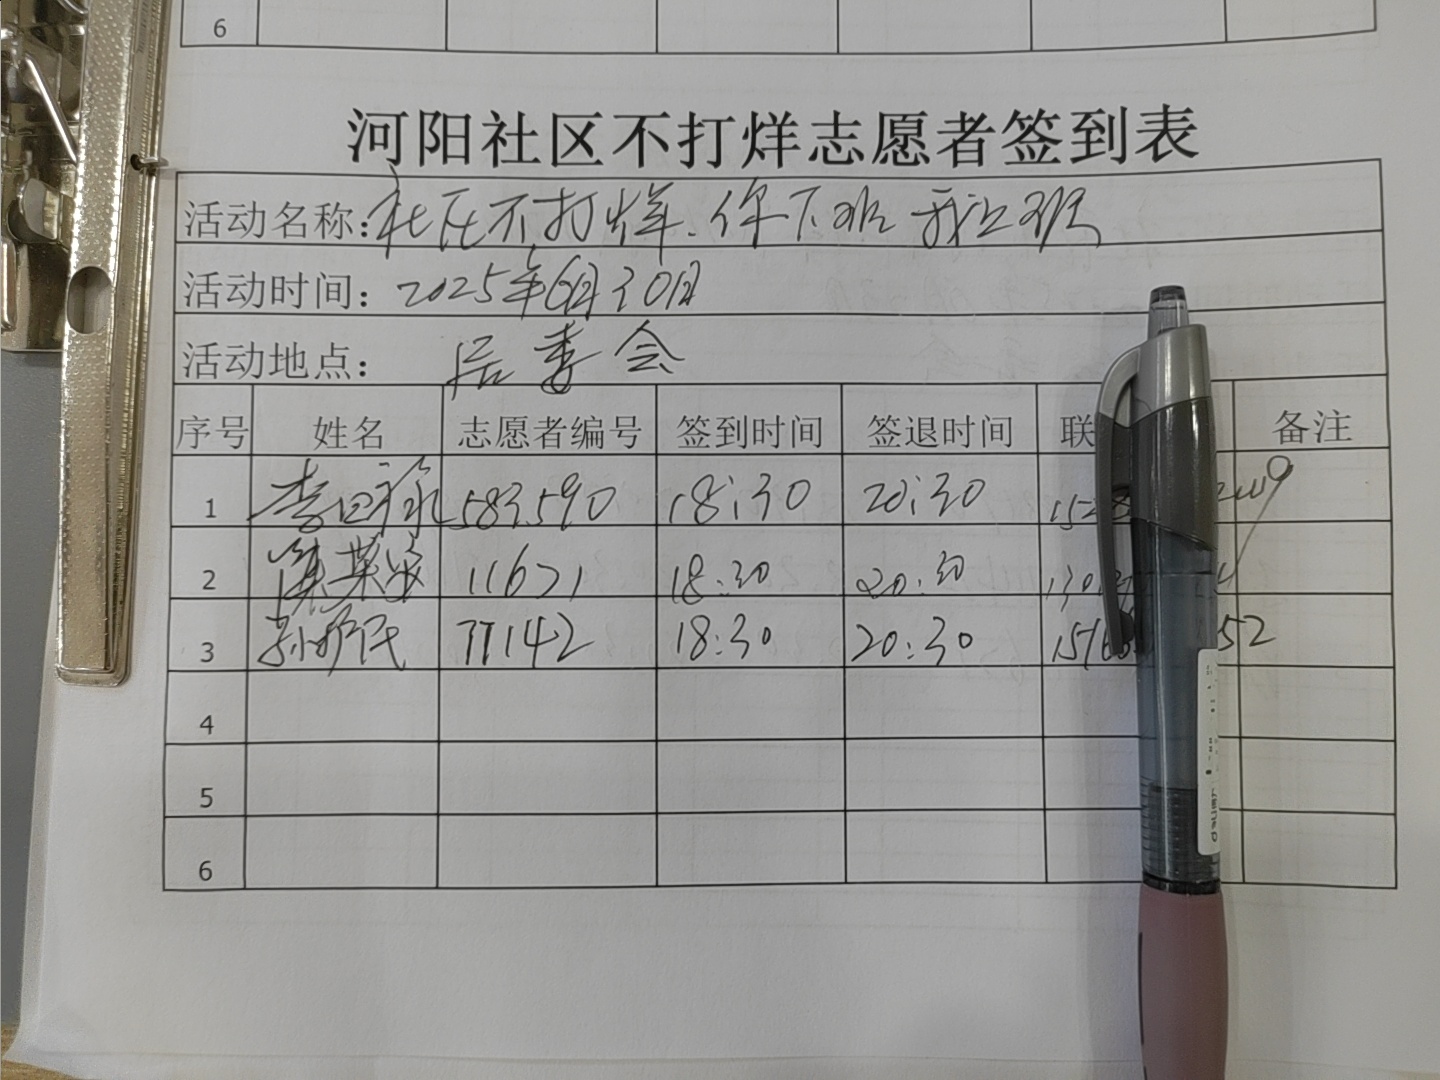 6
河阳社区不打烊志愿者签到表
活动名称:社区不打烊.你下班我上班
活动时间:2025年6月30日
活动地点: 居委会
序号 姓名 志愿者编号 签到时间 签退时间 联 备注
1 583590 18:30 20:30
2 11671 18:30 20:30
3 77142 18:30 20:30 52
4
5
6